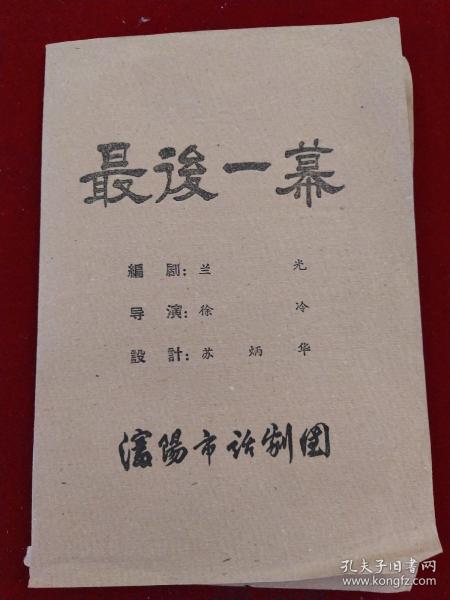 最後一幕
編劇：兰光
导演：徐冷
設計：苏炳华
瀋陽市话剧团
孔夫子旧书网
www.kongfz.com